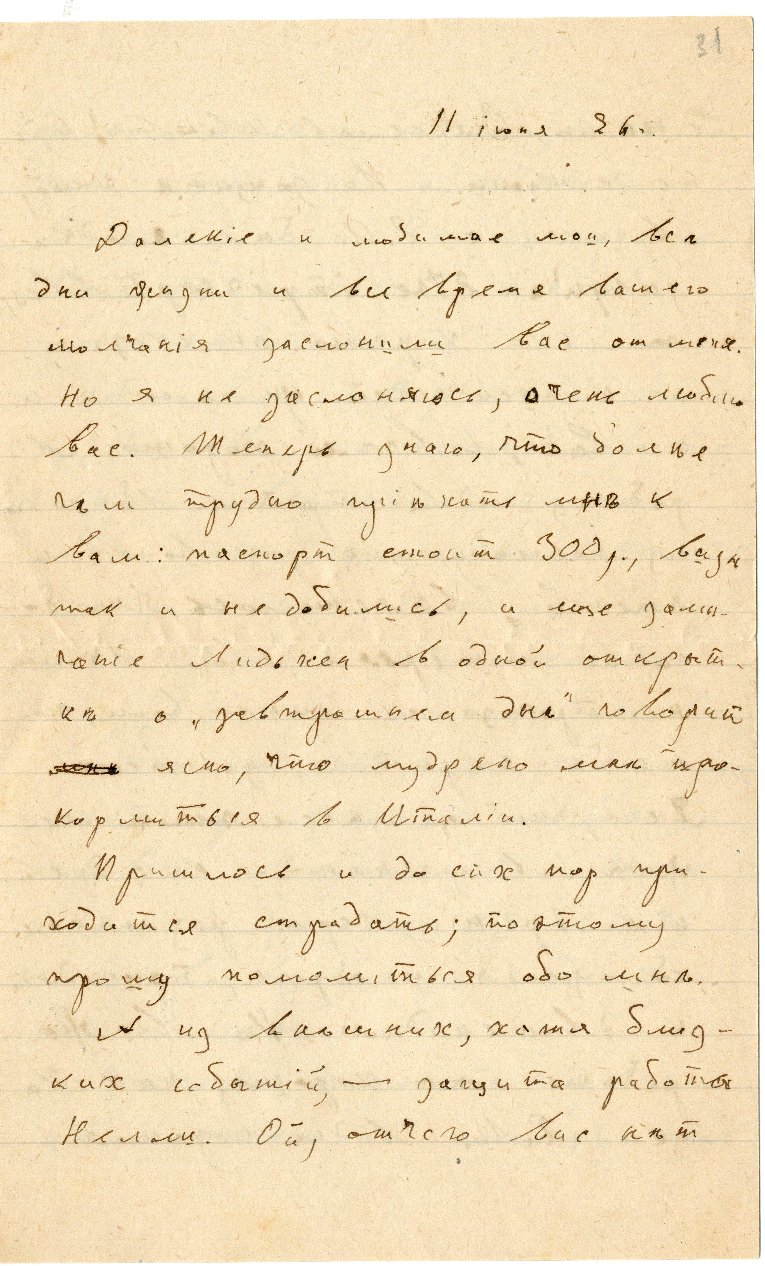 31
11 іюня 26.
Далекіе и любимые мои, все
дни жизни и все время вашего
молчанія заслонили вас от меня.
Но я не заслоняюсь, очень люблю
вас. Теперь знаю, что болѣе
чѣм трудно пріѣхать мнѣ к
вам: паспорт стоит 300 р., визы
так и не добились, и еще замѣ-
чаніе Лидьхен в одной открыт-
кѣ о „завтрашнем днѣ" говорит
ясно, что мудрено мнѣ про-
кормиться в Италіи.
Пришлось и до сих пор при-
ходится страдать; поэтому
прошу помолиться обо мнѣ.
А из внѣшних, хотя близ-
ких событій, — защита работы
Нелли. Ой, отчего вас нѣт